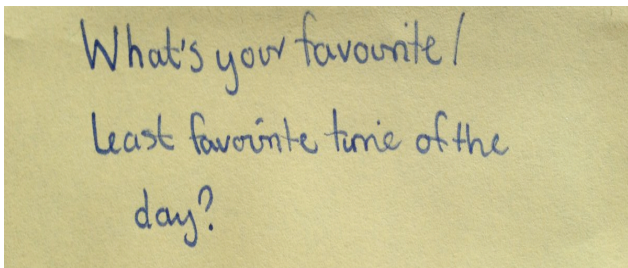 What's your favourite/
Least favourite time of the
day?